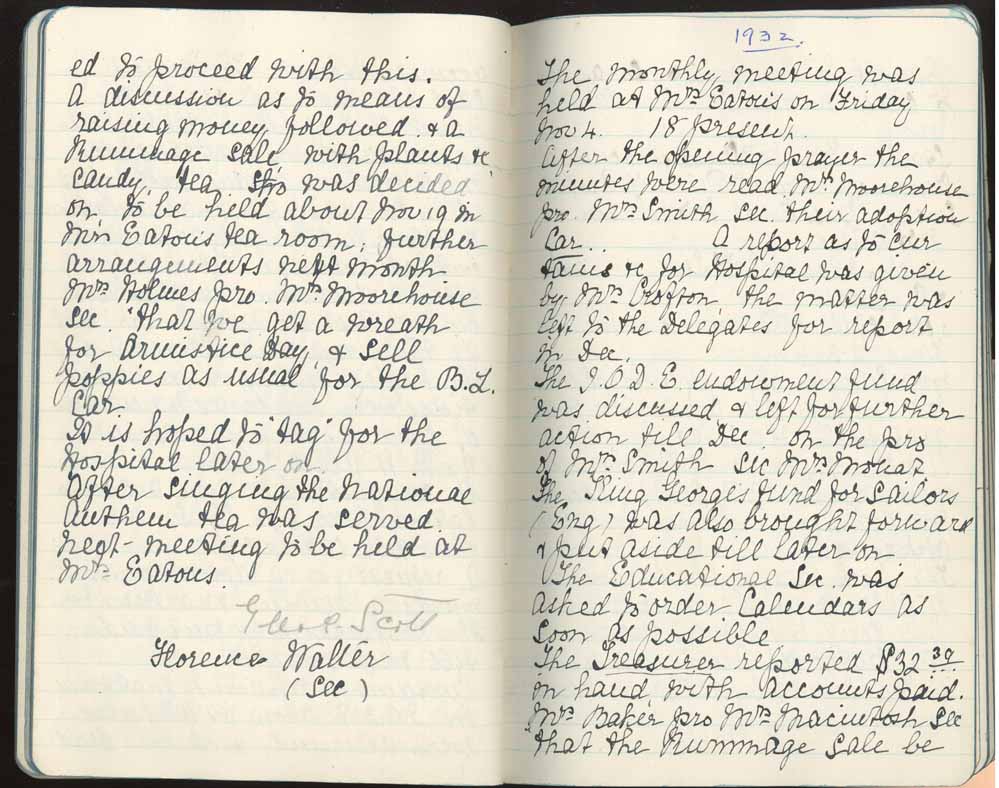 ed to proceed with this.
A discussion as to means of
raising money followed. & a
Rummage Sale with plants &c
candy, tea, was decided
on, to be held about Nov 19 in
Mrs Eaton's tea room; further
arrangements next month
Mrs Holmes pro. Mrs Moorehouse
sec. "that we get a wreath
for Armistice Day, & sell
poppies as usual for the B.L.
Car.
It is hoped to "tag" for the
Hospital later on.
After singing the National
Anthem tea was served.
Next - meeting to be held at
Mrs Eatons
Scott
Florence Walter
(Sec)
1932.
The monthly meeting was
held at Mrs Eaton's on Friday
Nov 4. 18 present.
After the opening prayer the
minutes were read, Mrs Moorehouse
pro. Mrs Smith sec. their adoption
Car.. A report as to cur
tains &c for Hospital was given
by Mrs Crofton the matter was
left to the Delegates for report
in Dec.
The I.O.D.E. endowment fund
was discussed & left for further
action till Dec on the pro
of Mrs Smith sec Mrs Mouat
The King George's fund for Sailors
(Eng) was also brought forward
& put aside till later on -
The Educational Sec. was
asked to order Calendars as
soon as possible
The Treasurer reported $32 39
in hand with accounts paid.
Mrs Baker pro Mrs Macintosh sec
that the Rummage Sale be